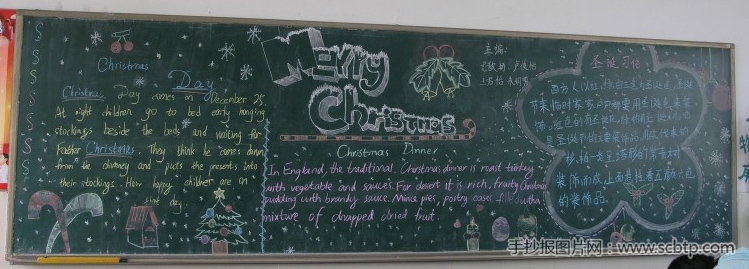 Christmas
Day
Christmas Day comes on December 25.
At night children go to bed early hanging
stockings beside the beds and waiting for
Father Christmas. They think he comes down
from the chimney and puts the presents into
their stockings. How happy children are on
that day
Merry
Christmas
Christmas Dinner
In England, the traditional Christmas dinner is roast turkey
with vegetable and sauces. For desert it is rich, fruity Christmas
pudding with brandy sauce. Mince pies, pastry case filled with a
mixture of chapped dried fruit.
主编:
圣诞习俗
西方人以红、绿、白三色为圣诞色,圣诞
节来临时家家户户都要用圣诞色来装
饰。红色的有圣诞花
是圣诞节的主要装饰品
装饰而成上面悬挂着五颜六色
的装饰品。
手抄报图片网:www.scbtp.com